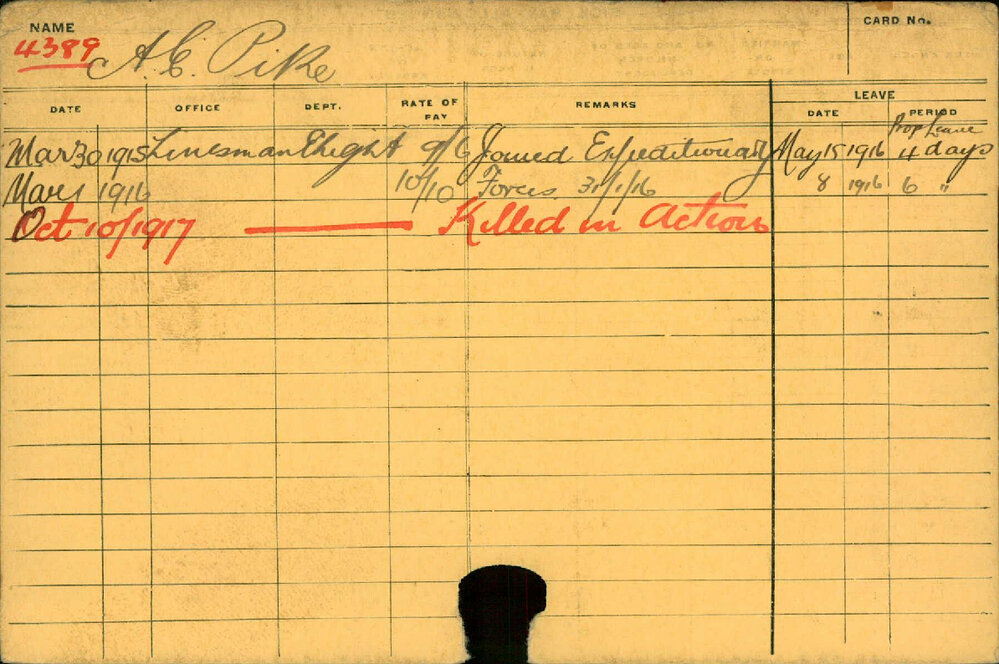 NAME
CARD No.
4389
A. C. Pike
LEAVE
DATE OFFICE DEPT. RATE OF PAY REMARKS DATE PERIOD
Prop Leave
Mar 30 1915 Linesman Elught 9/6 Joined Expeditionary May 15 1916 4 days
Mar 1 1916 10/10 Forces 31/1/16 8 1916 6 "
Oct 10/1917 Killed in Action